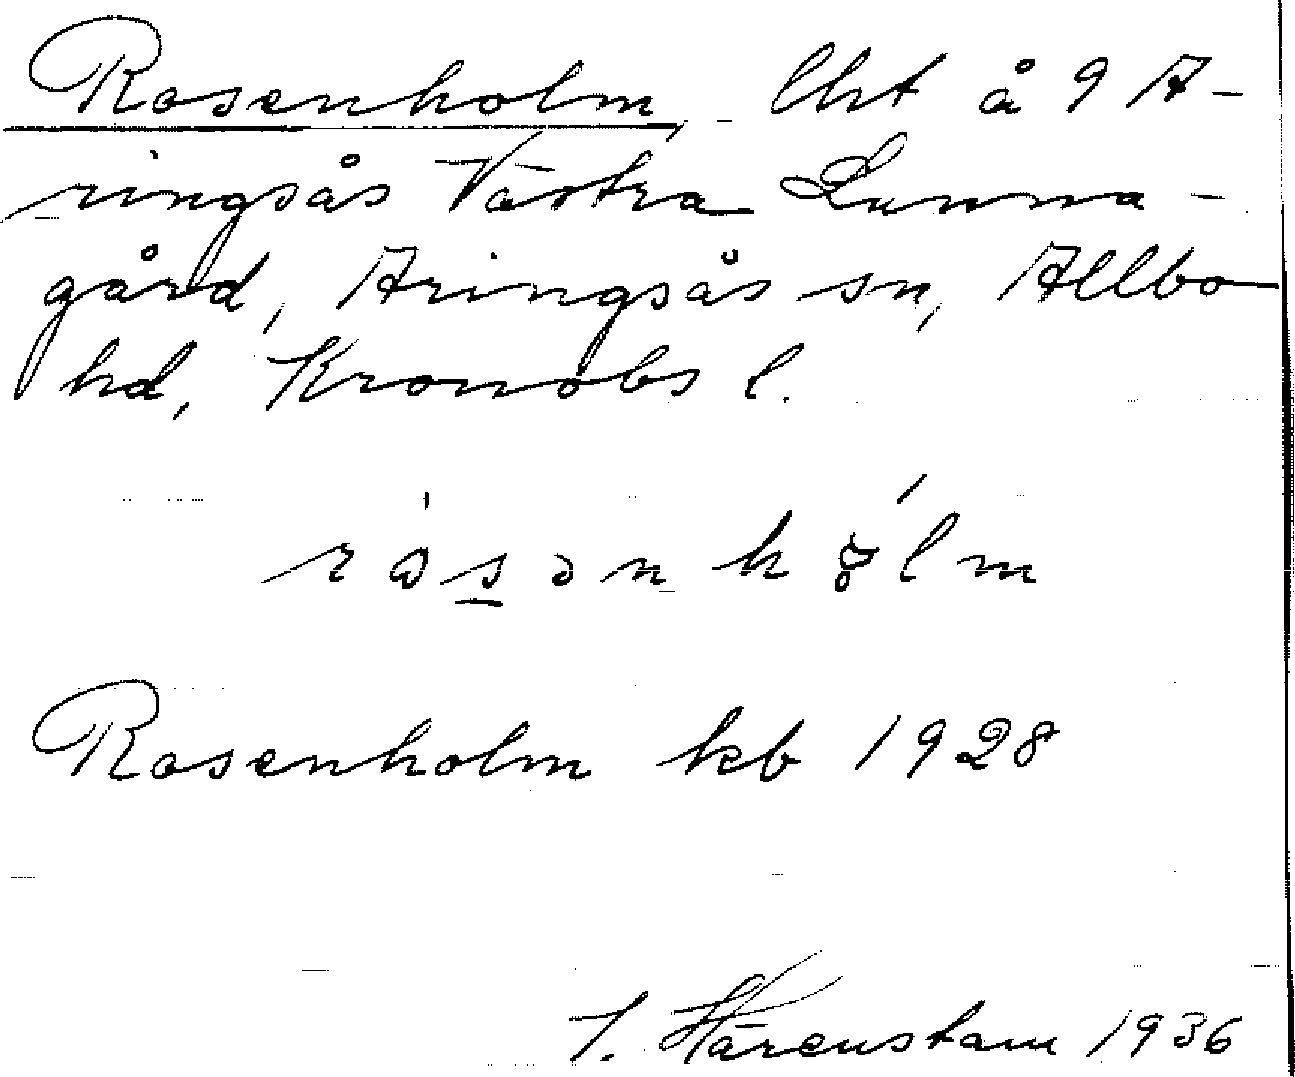 Rosenholm, lht å 9 A-
ringsås Västra Lunna-
gård, Aringsås sn, Allbo
hd, Kronobs l.
Rosenholm kb 1928
Härenstam 1936